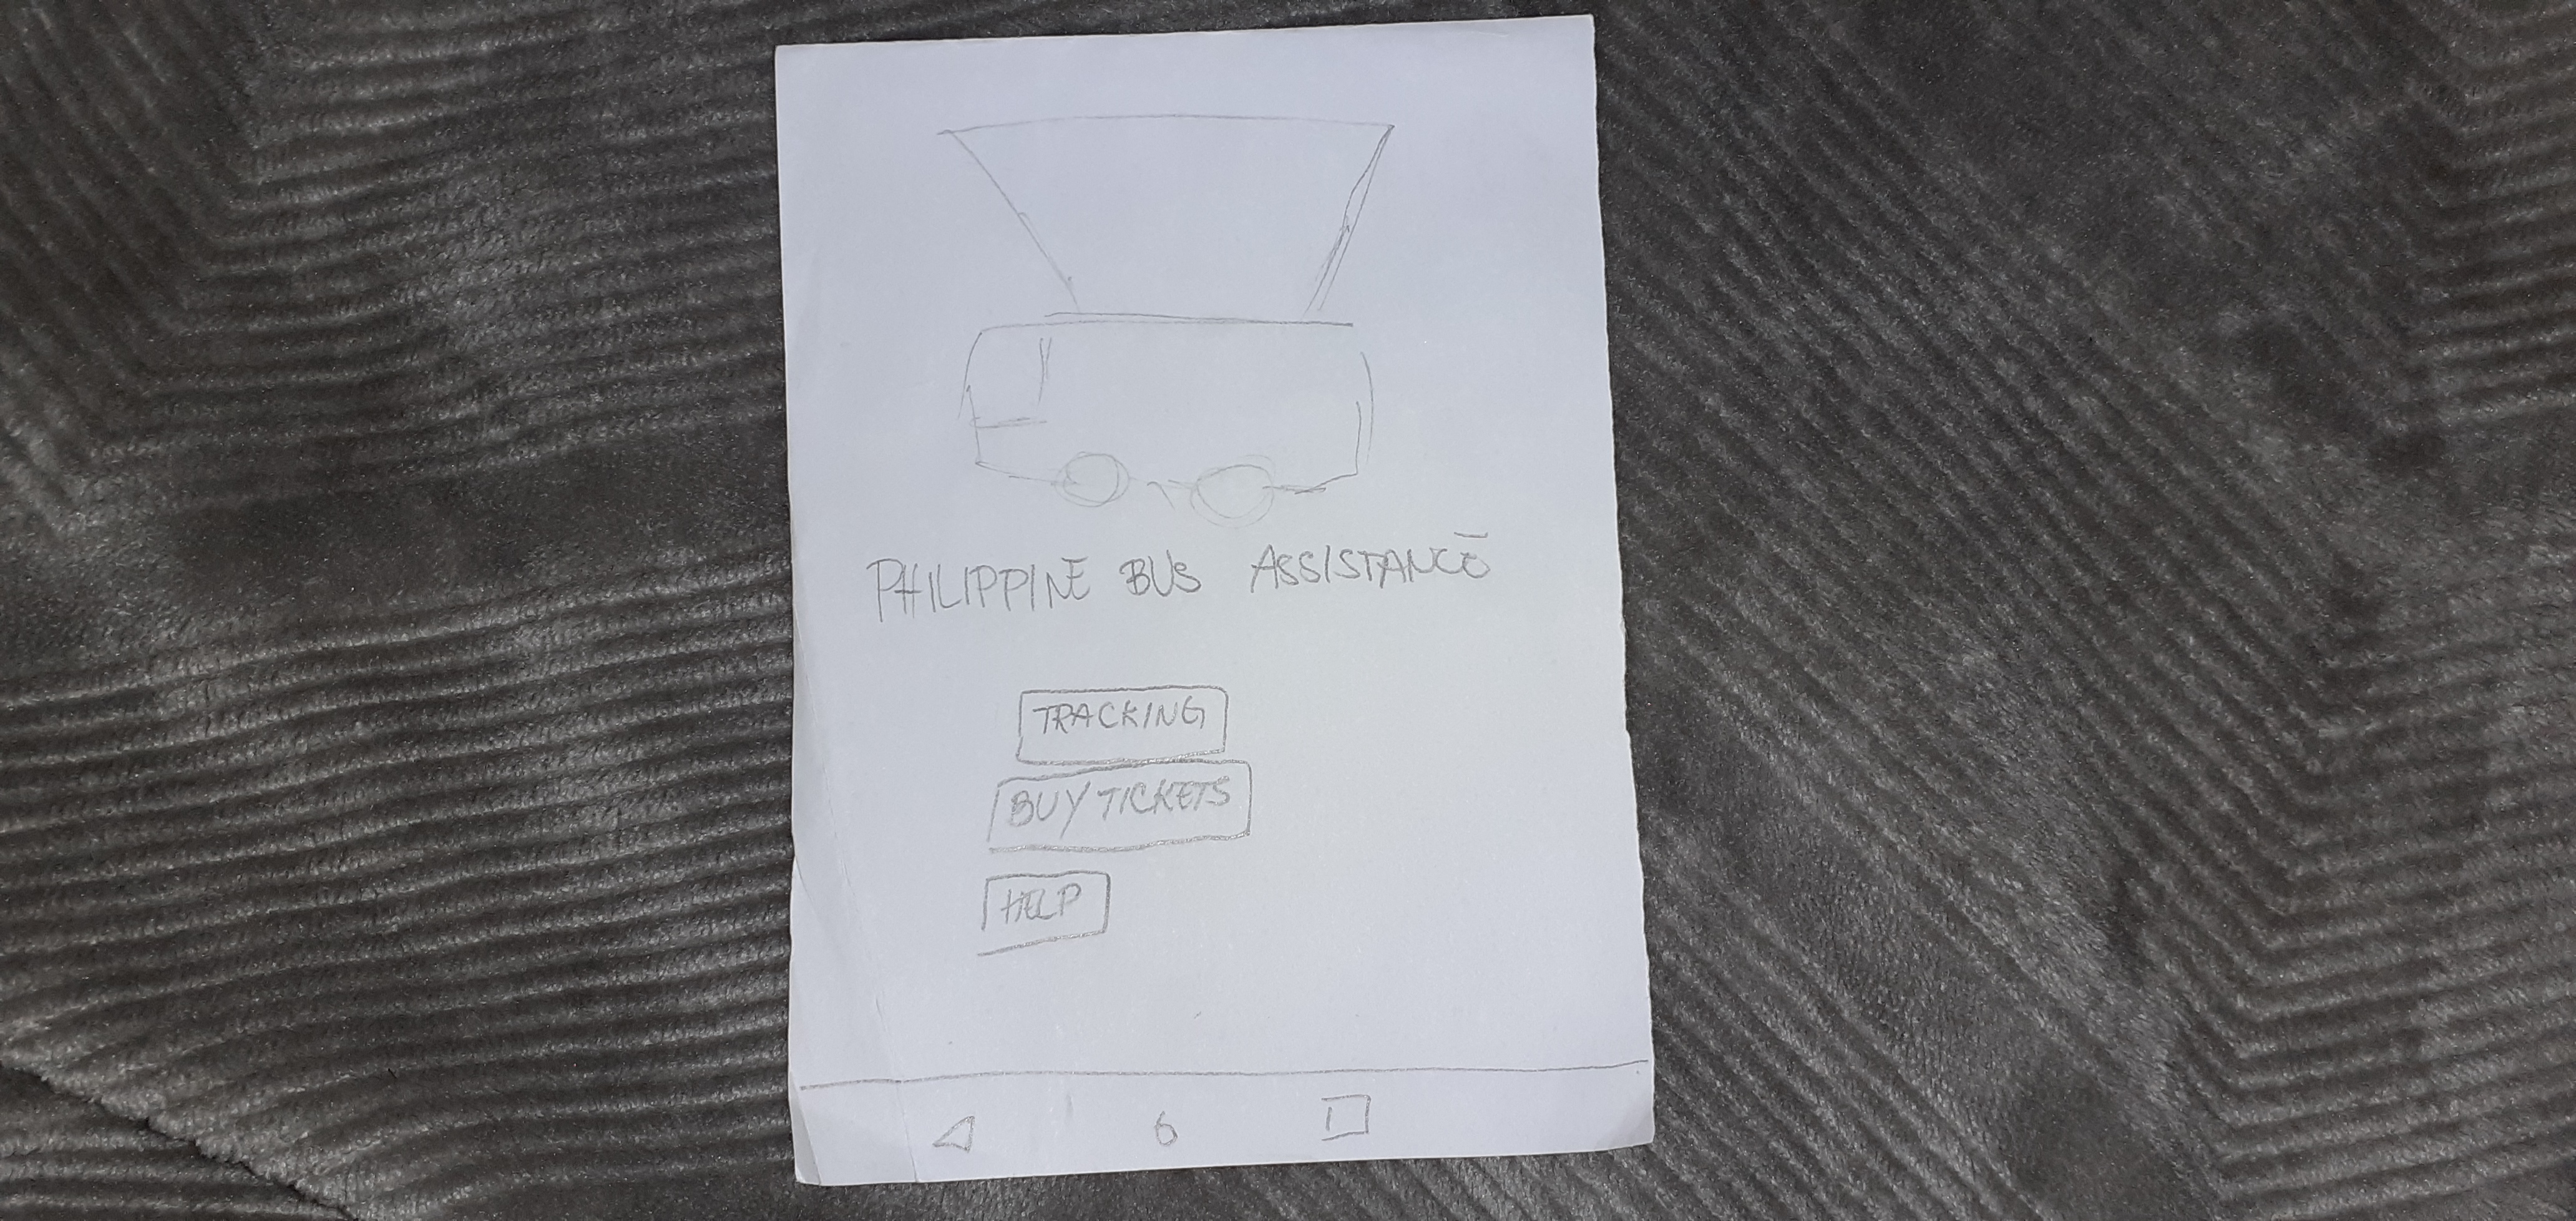 PHILIPPINE BUS ASSISTANCE
TRACKING
BUY TICKETS
HELP